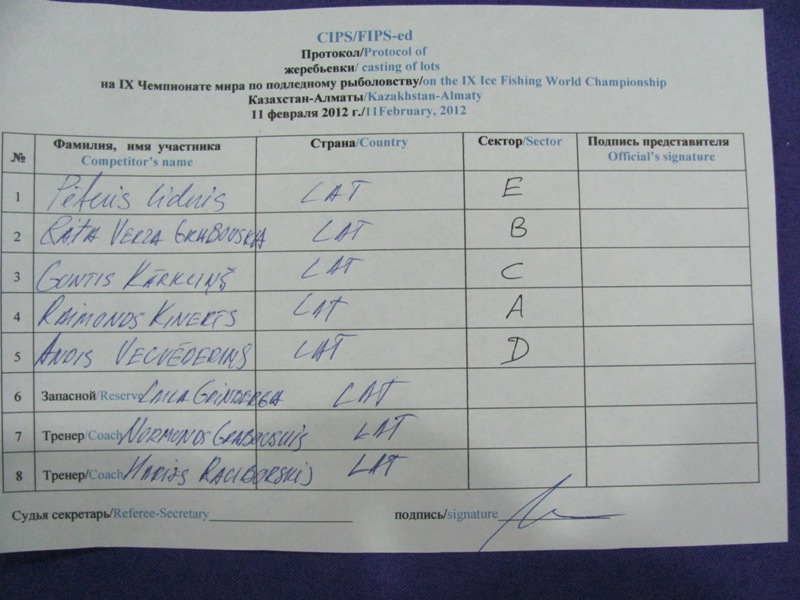 CIPS/FIPS-ed
Протокол/Protocol of
жеребьевки/ casting of lots
на IX Чемпионате мира по подледному рыболовству/on the IX Ice Fishing World Championship
Казахстан-Алматы/Kazakhstan-Almaty
11 февраля 2012 г./11February, 2012
№ Фамилия, имя участника Страна/Country Сектор/Sector Подпись представителя
Competitor's name Official's signature
1 Pēteris LAT E
2 RITA VERZA GRABOVSKA LAT B
3 GONTIS KĀRKLIŅŠ LAT C
4 RAIMONDS KINERTS LAT A
5 ANDIS VECVĒDERIŅŠ LAT D
6 Запасной/Reserve LAT
7 Тренер/Coach NORMONDS GRABOVSKIS LAT
8 Тренер/Coach RACIBORSKIS LAT
Судья секретарь/Referee-Secretary подпись/signature